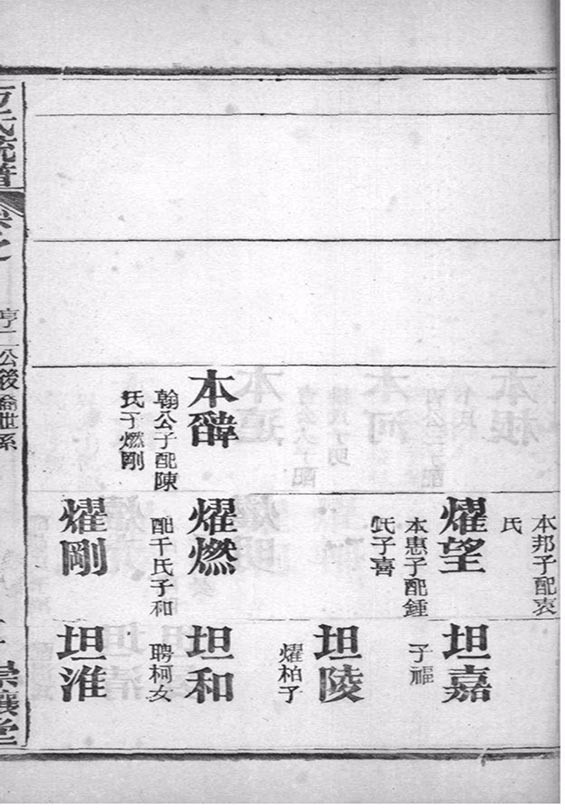 本
翰公子配陳
氏子燃剛
本邦子配
氏
耀望
本惠子配鍾
氏子喜
耀燃
配干氏子和
耀剛
坦嘉
子
坦陵
耀柏子
坦和
聘柯女
坦淮
氏統譜
卷之
亨二公後裔世系
崇讓堂